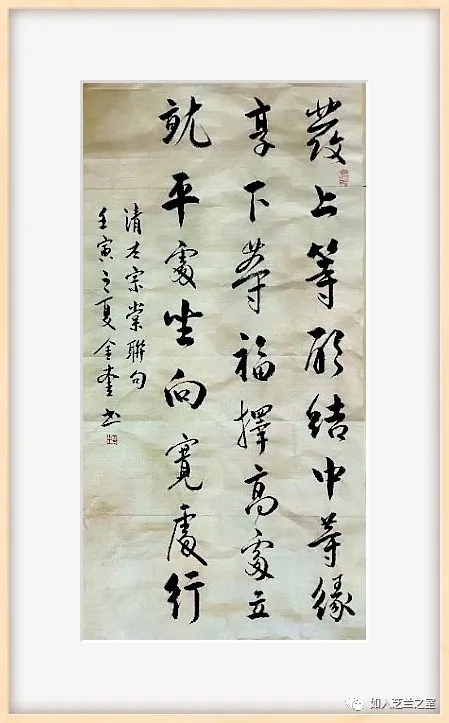 發上等願結中等緣
享下等福擇高處立
就平處坐向寬處行
清左宗棠聯句
壬寅之夏金奎书
如入芝兰之室